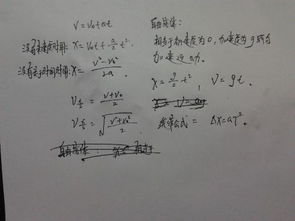 V=V₀+at
没有末速度时用: X=V₀t+a/2 t²
没有运动时间时用: X=(V²-V₀²)/2a
V t/2 = (V+V₀)/2
V x/2 = √((V²+V₀²)/2)
自由落体:
相当于初速度为0,加速度为g的匀
加速运动。
x=g/2 t², V=gt.
纸带公式= ΔX=aT².